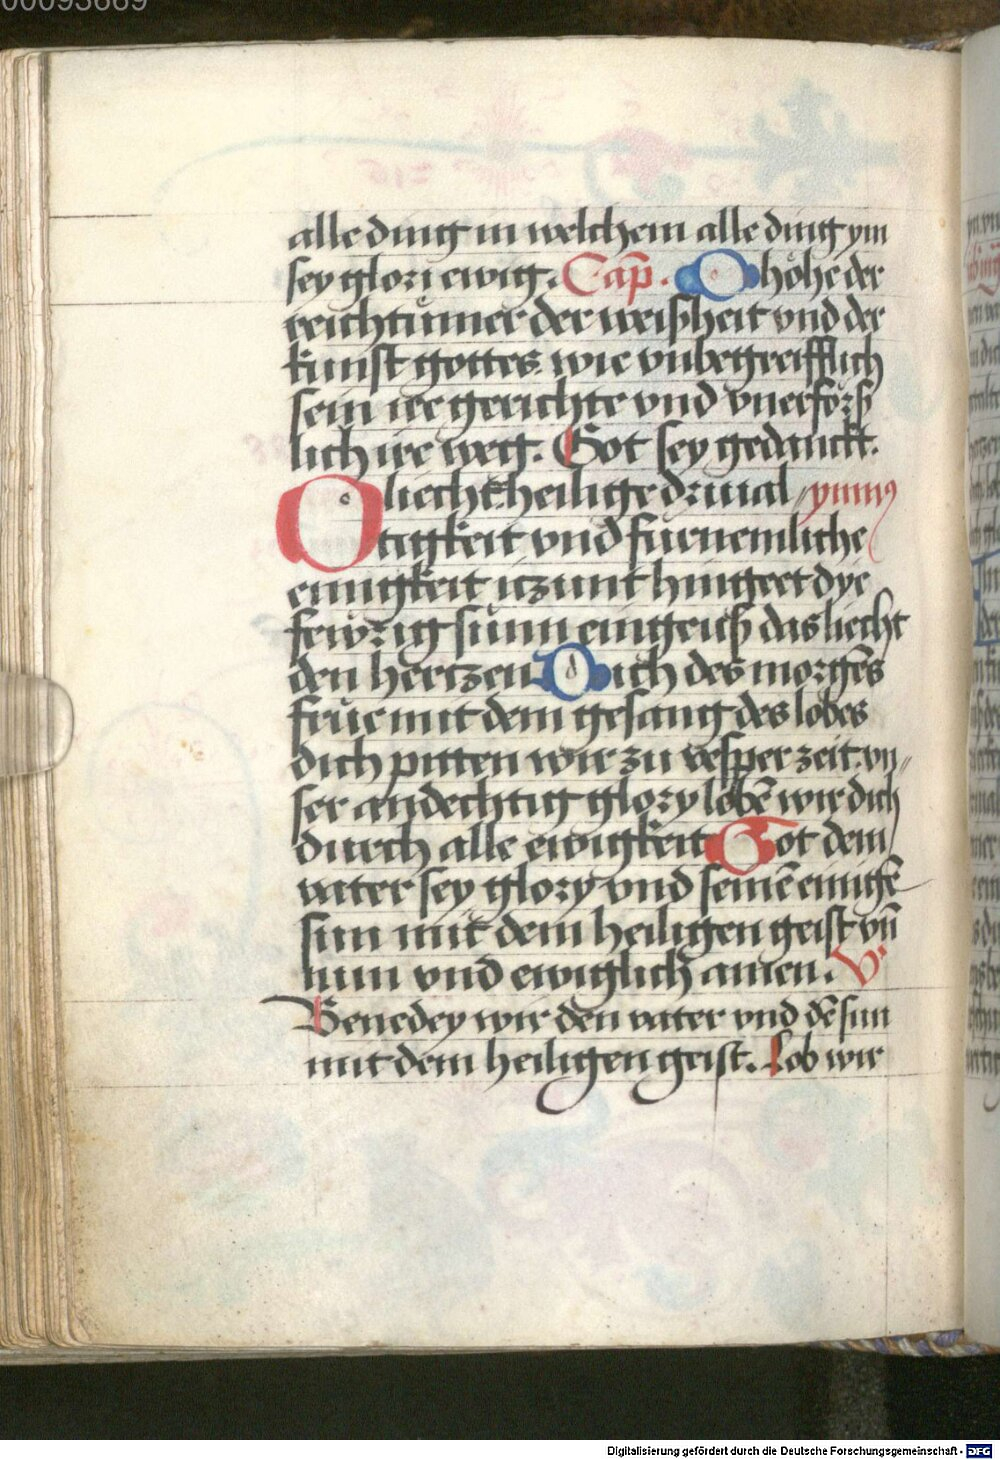 00093889
alle ding in welchem alle ding ym
sey glori ewig. Cap̄. O höhe der
reichtümer der weißheit vnd der
kunst gottes wie vnbegreifflich
sein ire gerichte vnd vnerforß
lich ire weg. Got sey gedanckt.
O liecht heilige driual ymnꝰ
tigkeit vnd fürnemliche
einigkeit iczunt hingeet dye
fewrig sunn eingeuß das liecht
den hertzen Dich des morgēs
früe mit dem gesang des lobes
dich pitten wir zu vesper zeit. vn
ser andechtig glory lobē wir dich
durch alle ewigkeit Got dem
vater sey glory vnd seinē einigē
sun mit dem heiligen geist vn̄
nun vnd ewiglich amen. V.
Benedey wir den vater vnd dē sun
mit dem heiligen geist. Lob wir
Digitalisierung gefördert durch die Deutsche Forschungsgemeinschaft - DFG